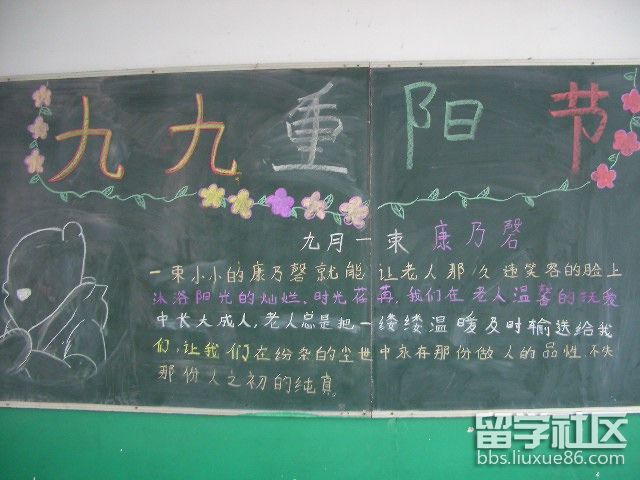 九九重阳节
九月一束 康乃馨
一束小小的康乃馨就能 让老人那久违笑容的脸上
沐浴阳光的灿烂。时光荏苒,我们在老人温馨的抚爱
中长大成人,老人总是把一缕缕温暖及时输送给我
们,让我们在纷杂的尘世中永存那份做人的品性不失
那份人之初的纯真。
留学社区
bbs.liuxue86.com